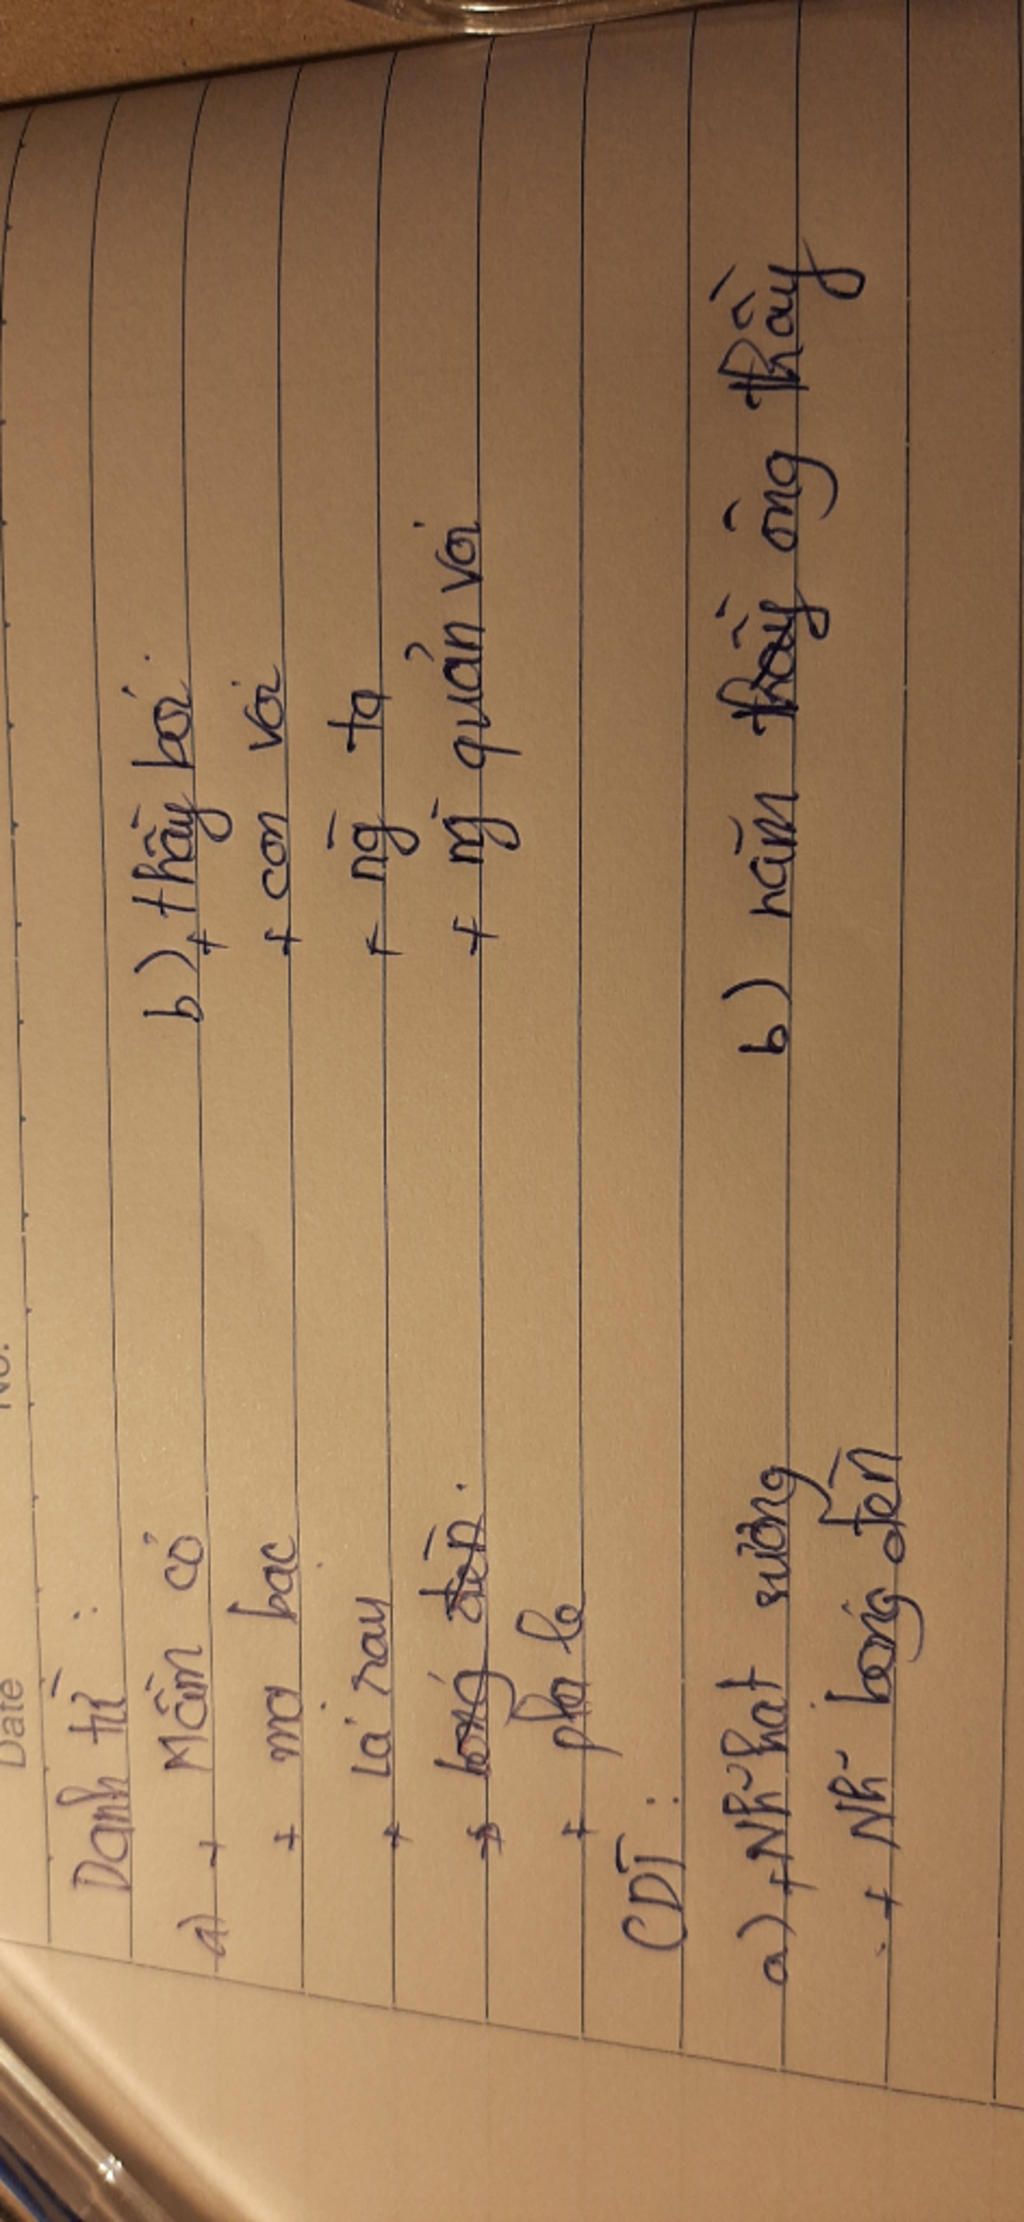 Date
No.
Danh từ :
a) + Mầm cỏ b) + thầy bói.
+ mơ bạc + con voi
+ Lá ray + ng̀ ta
+ bóng đèn. + ng̀ quản voi
+ pha lê
CDT :
a) + Nh̃ hạt sương b) năm thầy ông thầy
+ Nh̃ bóng đèn